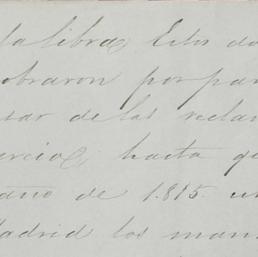 la libra, Estos do
obraron por par
sar de las recla
ercio, hasta qu
año de 1.815. un
Madrid los man